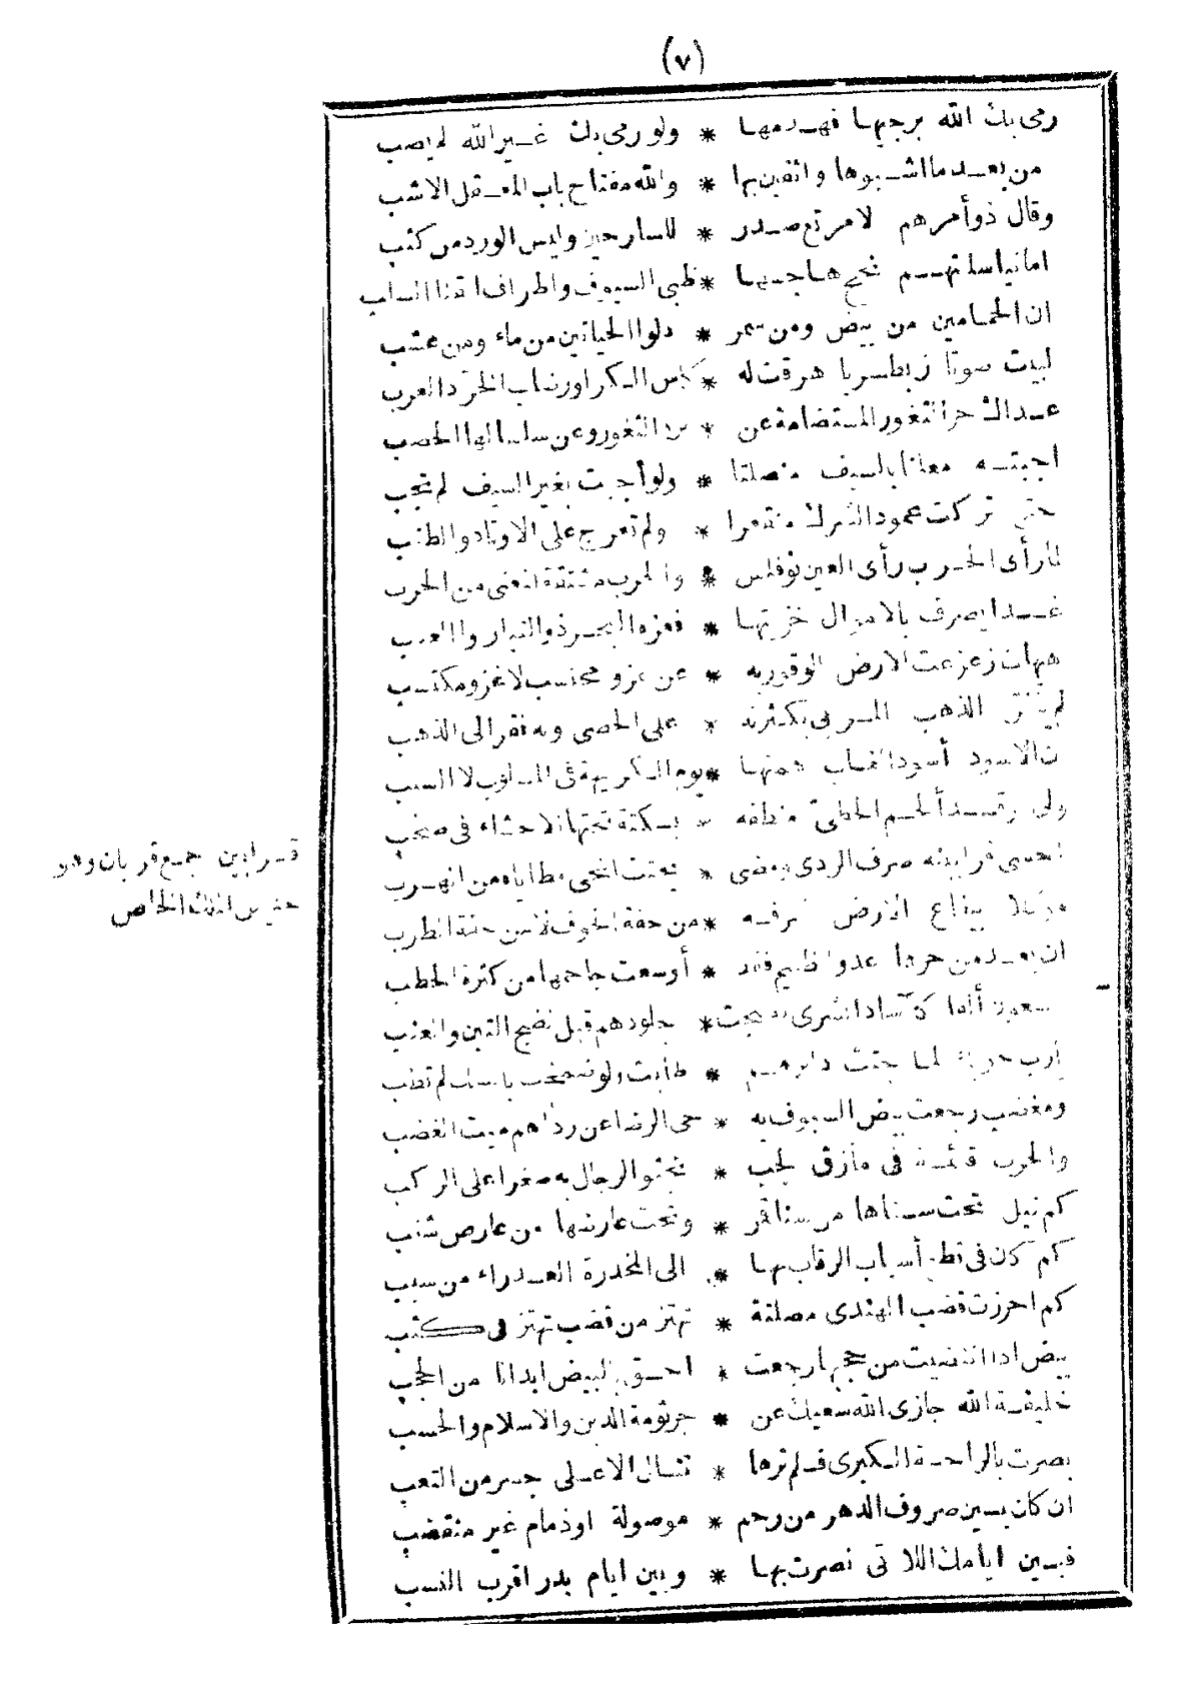 (٧)
رمى بك الله برجيها فهدمها * ولو رمى بك غير الله لم يصب
من بعد ما اشبوها واثقين بها * والله مفتاح باب المعقل الاشب
وقال ذو أمرهم لا مرتع صدر * للسارحين وليس الورد من كثب
امانيا سلبتهم نجح هاجسها * ظبى السيوف واطراف القنا السلب
ان الحمامين من بيض ومن سمر * دلوا الحياتين من ماء ومن عشب
لبيت صوتا زبطريا هرقت له * كاس الكرا ورضاب الخرد العرب
عداك حر الثغور المستضامة عن * برد الثغور وعن سلسالها الحصب
اجبته معلنا بالسيف منصلتا * ولو أجبت بغير السيف لم تجب
حتى تركت عمود الشرك منقعرا * ولم تعرج على الاوتاد والطنب
لما رأى الحرب رأى العين توفلس * والحرب مشتقة المعنى من الحرب
غدا يصرف بالاموال خزيتها * فعزه البحر ذو التيار والعبب
هيهات زعزعت الارض الوقور به * عن غزو محتسب لا غزو مكتسب
لم ينفق الذهب المربى بكثرته * على الحصى وبه فقر الى الذهب
ان الاسود أسود الغاب همتها * يوم الكريهة فى المسلوب لا السلب
ولى وقد ألجم الخطى منطقه * بسكتة تحتها الاحشاء فى صخب
احسى قرابينه صرف الردى ومضى * يحتث انجى مطاياه من الهرب
موكلا بيفاع الارض يشرفه * من خفة الخوف لا من خفة الطرب
ان يعد من حرها عدو الظليم فقد * أوسعت جاحمها من كثرة الحطب
تسعون ألفا كآساد الشرى نضجت * جلودهم قبل نضج التين والعنب
يا رب حوباء لما اجتث دابرهم * طابت ولو ضمخت بالمسك لم تطب
ومغضب رجعت بيض السيوف به * حى الرضا عن رداهم ميت الغضب
والحرب قائمة فى مأزق لجب * تجثو الرجال به صغرا على الركب
كم نيل تحت سناها من سنا قمر * وتحت عارضها من عارض شنب
كم كان فى قطع أسباب الرقاب بها * الى المخدرة العذراء من سبب
كم احرزت قضب الهندى مصلتة * تهتز من قضب تهتز فى كثب
بيض اذا انتضيت من حجبها رجعت * احق بالبيض ابدانا من الحجب
خليفة الله جازى الله سعيك عن * جرثومة الدين والاسلام والحسب
بصرت بالراحة الكبرى فلم ترها * تنال الا على جسر من التعب
ان كان بين صروف الدهر من رحم * موصولة او ذمام غير منقضب
فبين ايامك اللاتى نصرت بها * وبين ايام بدر اقرب النسب
قرابين جمع قربان وهو
جليس الملك الخاص